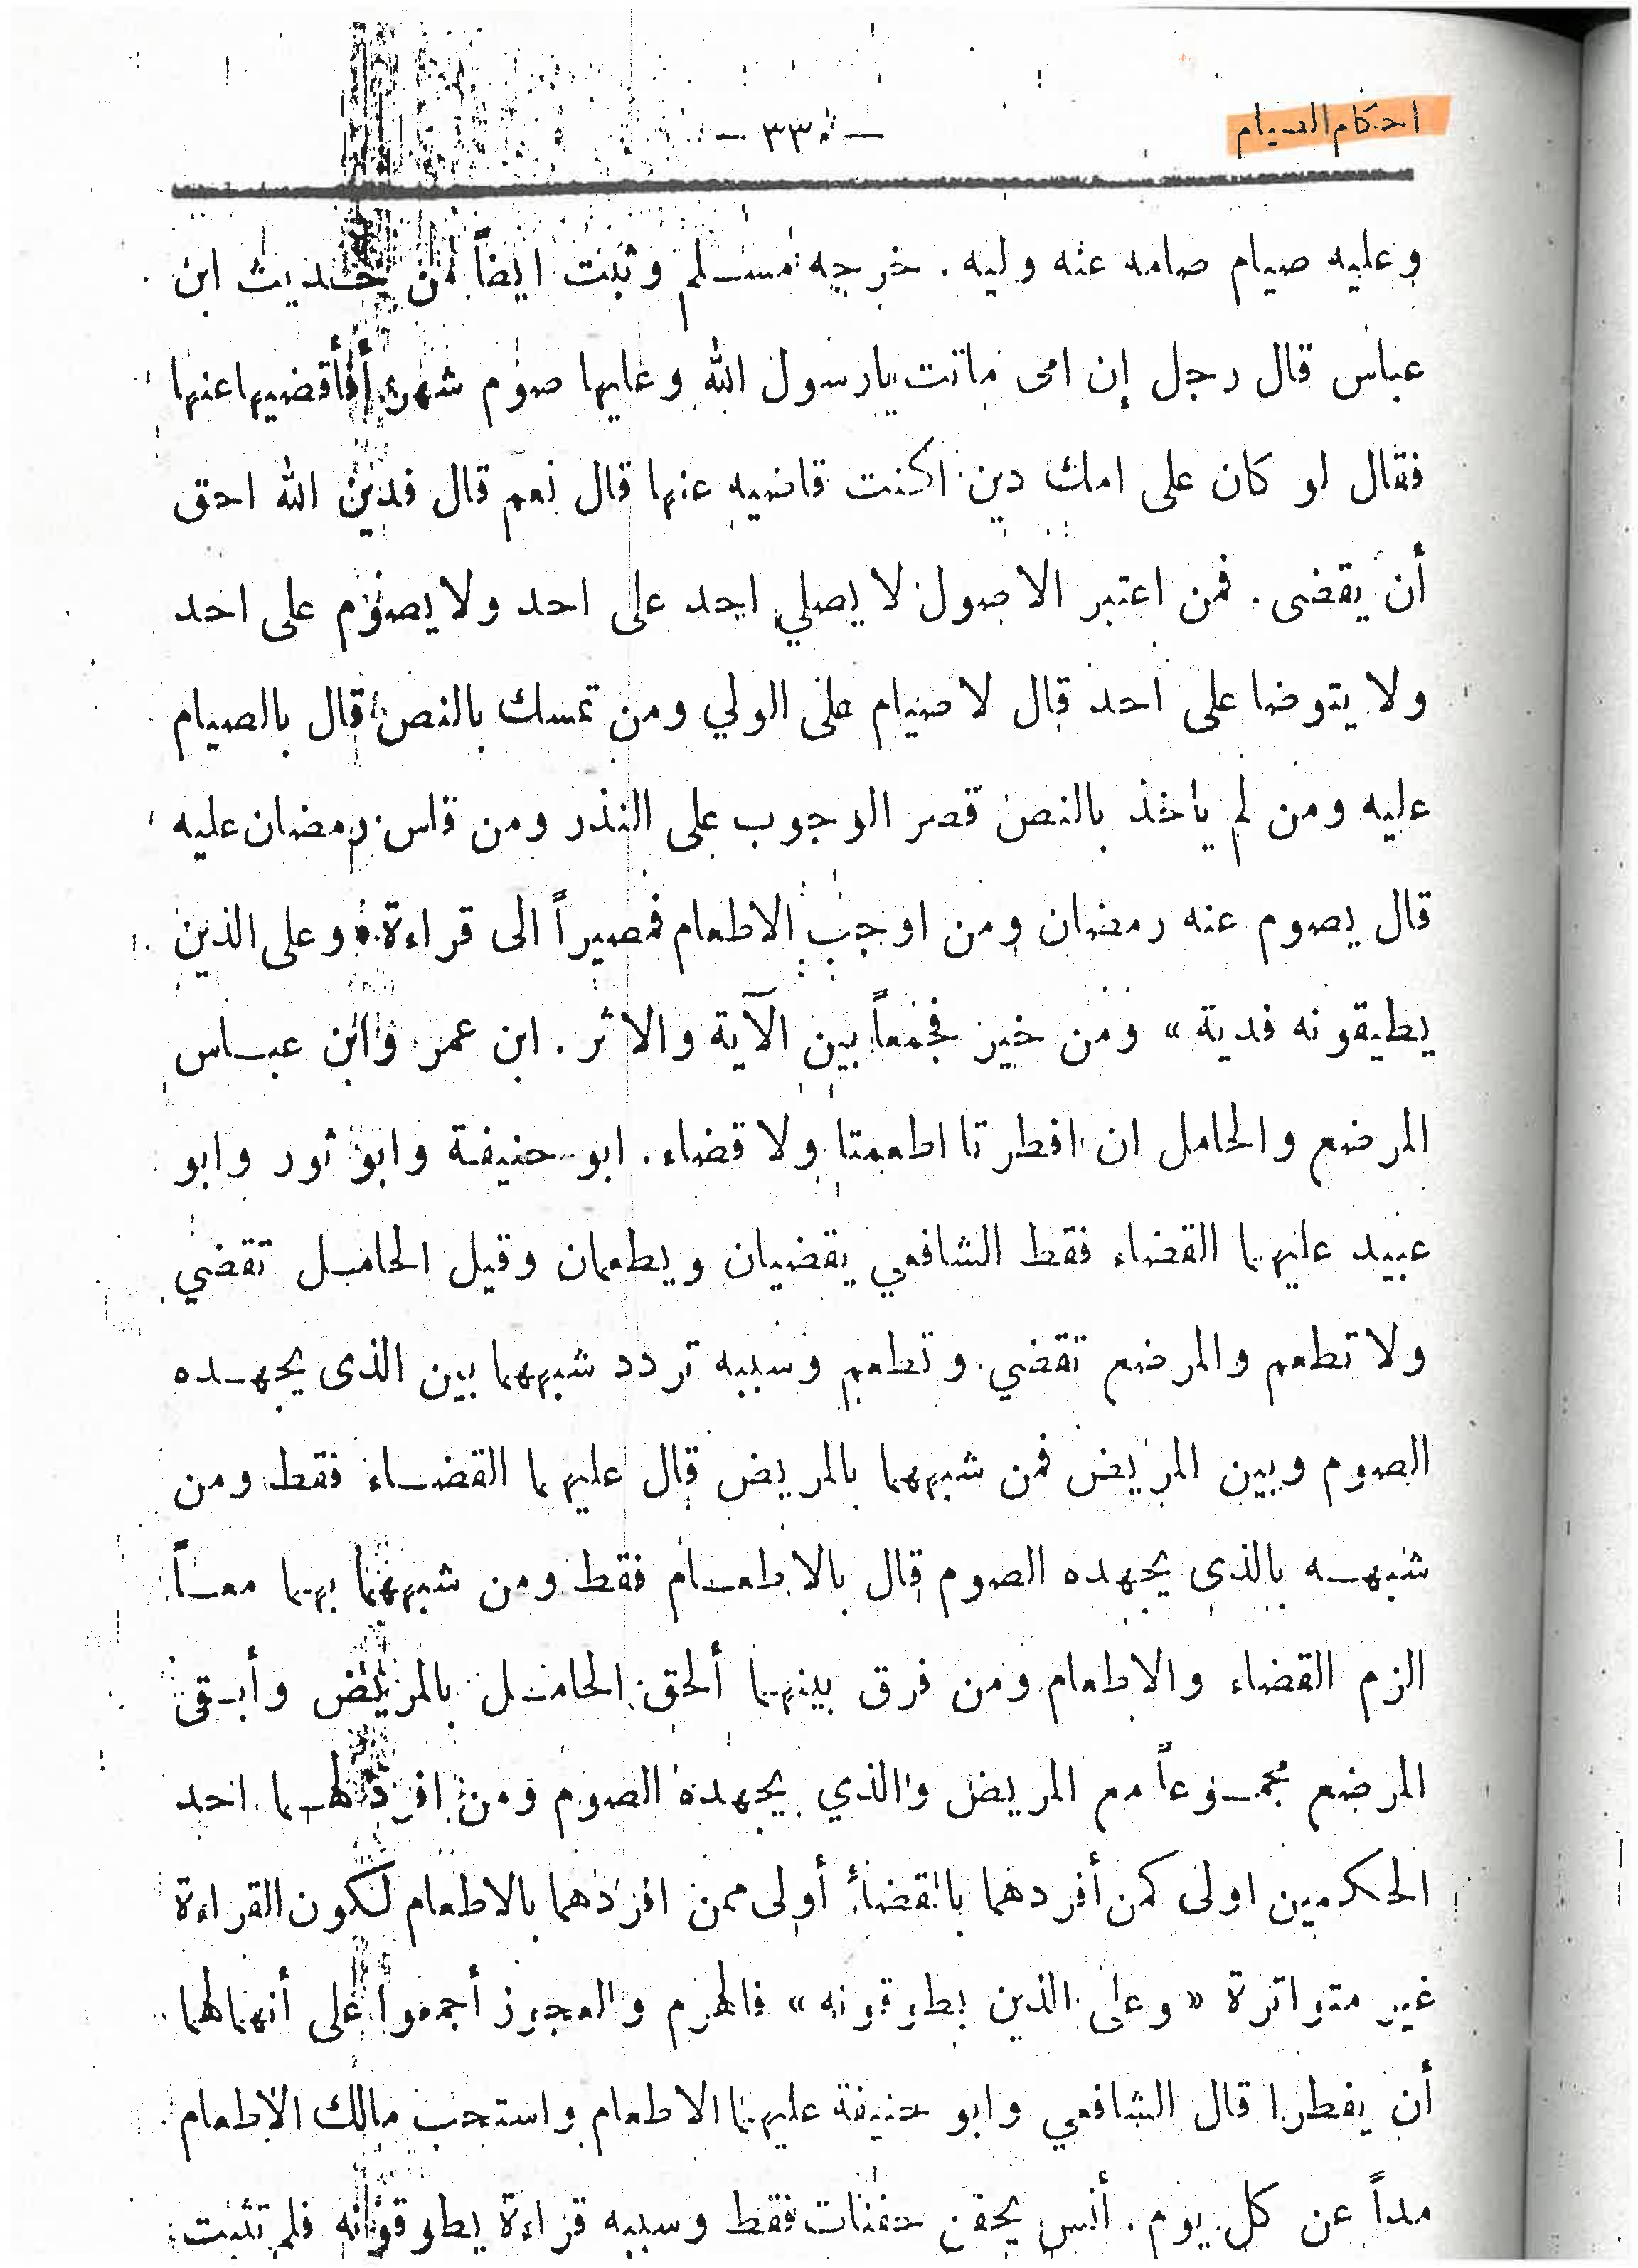 احكام الصيام
وعليه صيام صامه عنه وليه . خرجه مسلم وثبت ايضاً من حديث ابن
عباس قال رجل إن امى ماتت يارسول الله وعليها صوم شهر أفأقضيها عنها
فقال لو كان على امك دين اكنت قاضيه عنها قال نعم قال فدين الله احق
أن يقضى . فمن اعتبر الاصول لا يصلي احد على احد ولا يصوم على احد
ولا يتوضا على احد قال لا صيام على الولي ومن تمسك بالنص قال بالصيام
عليه ومن لم ياخذ بالنص قصر الوجوب على النذر ومن قاس رمضان عليه
قال يصوم عنه رمضان ومن اوجب الاطعام فمصيراً الى قراءة وعلى الذين
يطيقونه فدية » ومن خير فجمعاً بين الآية والاثر . ابن عمر وابن عباس
المرضع والحامل ان افطرتا اطعمتا ولا قضاء . ابو حنيفة وابو ثور وابو
عبيد عليهما القضاء فقط الشافعي يقضيان ويطعمان وقيل الحامل تقضي
ولا تطعم والمرضع تقضي وتطعم وسببه تردد شبههما بين الذى يجهده
الصوم وبين المريض فمن شبههما بالمريض قال عليهما القضاء فقط ومن
شبهه بالذى يجهده الصوم قال بالاطعام فقط ومن شبههما بهما معاً
الزم القضاء والاطعام ومن فرق بينهما ألحق الحامل بالمريض وأبقى
المرضع مجموعاً مع المريض والذي يجهده الصوم ومن افرد لهما احد
الحكمين اولى كمن أفردهما بالقضاأ أولى ممن افردهما بالاطعام لكون القراءة
غير متواترة « وعلى الذين يطوقونه » فالهرم والعجوز أجمعوا على أنهما لهما
أن يفطرا قال الشافعي وابو حنيفة عليهما الاطعام واستحب مالك الاطعام
مداً عن كل يوم . أنس يحفن حفنات فقط وسببه قراءة يطوقونه فلم تثبت